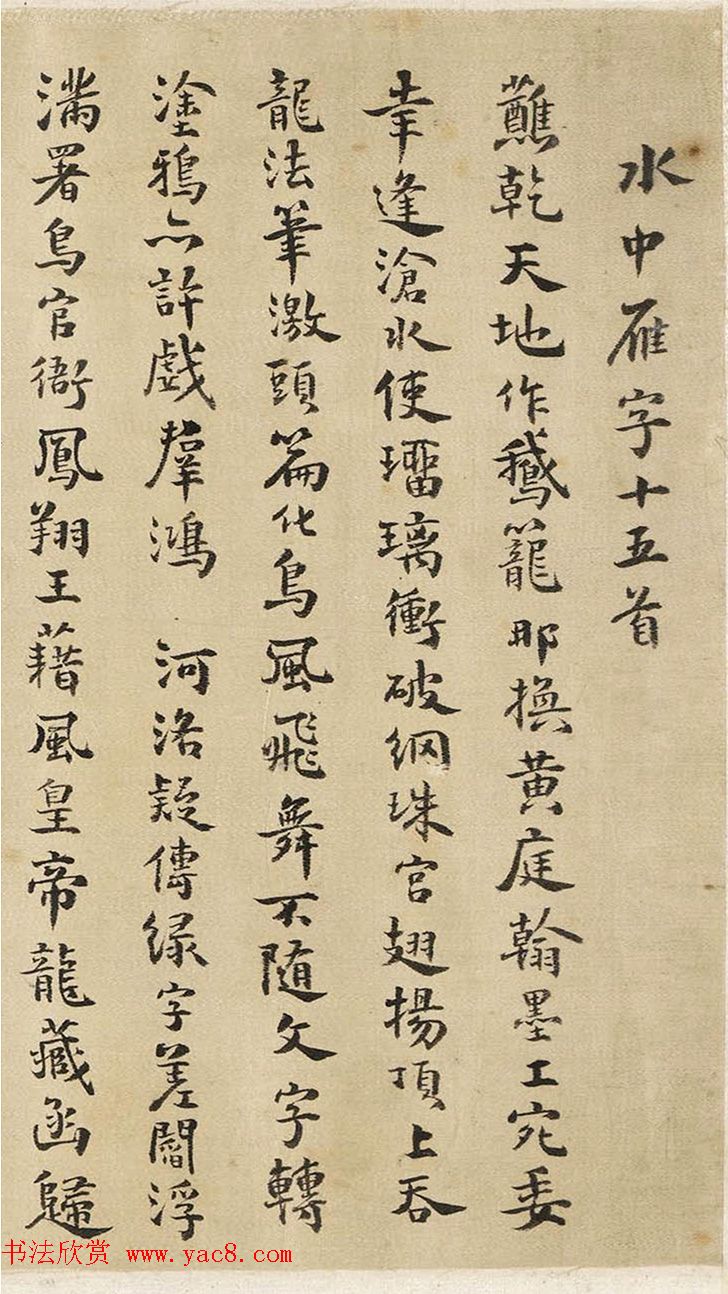 水中雁字十五首
蘸乾天地作鵝籠那換黃庭翰墨工宛委
幸逢滄水使瑠璃衝破網珠宮翅揚頂上吞
龍法筆激頭篇化鳥風飛舞不隨文字轉
塗鴉亦許戲羣鴻 河洛疑傳綠字差閻浮
滿署鳥官衙鳳翔王藉風皇帝龍藏函歸
书法欣赏 www.yac8.com